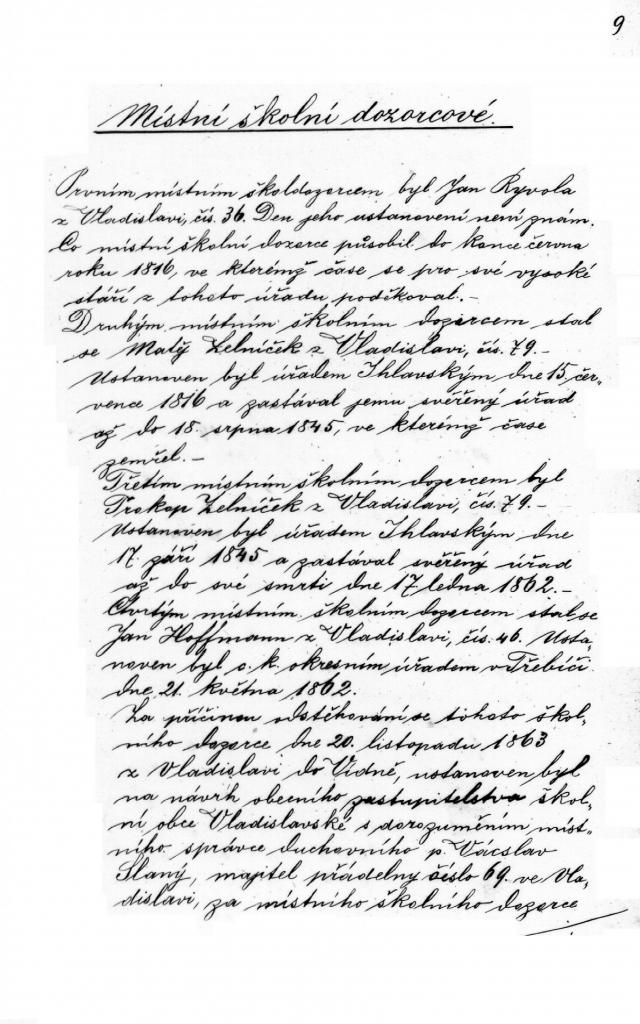 9
Místní školní dozorcové.
Prvním místním školdozorcem byl Jan Ryvola
z Vladislavi, čís. 36. Den jeho ustanovení není znám.
Co místní školní dozorce působil do konce června
roku 1816, ve kterémž čase se pro své vysoké
stáří z tohoto úřadu poděkoval. –
Druhým místním školním dozorcem stal
se Matěj Zelníček z Vladislavi, čís. 79. –
Ustanoven byl úřadem Jhlavským dne 15. čer-
vence 1816 a zastával jemu svěřený úřad
až do 18. srpna 1845, ve kterémž čase
zemřel. –
Třetím místním školním dozorcem byl
Prokop Zelníček z Vladislavi, čís. 79. –
Ustanoven byl úřadem Jhlavským dne
17. září 1845 a zastával svěřený úřad
až do své smrti, dne 17. ledna 1862. –
Čtvrtým místním školním dozorcem stal se
Jan Hoffmann z Vladislavi, čís. 46. Usta-
noven byl c. k. okresním úřadem v Třebíči
dne 21. května 1862.
Za příčinou odstěhování se tohoto škol-
ního dozorce dne 20. listopadu 1863
z Vladislavi do Vídně, ustanoven byl
na návrh obecního zastupitelstva škol-
ní obce Vladislavské s dorozuměním míst-
ního správce duchovního p. Vácslav
Slaný, majitel přádelny číslo 69. ve Vla-
dislavi, za místního školního dozorce